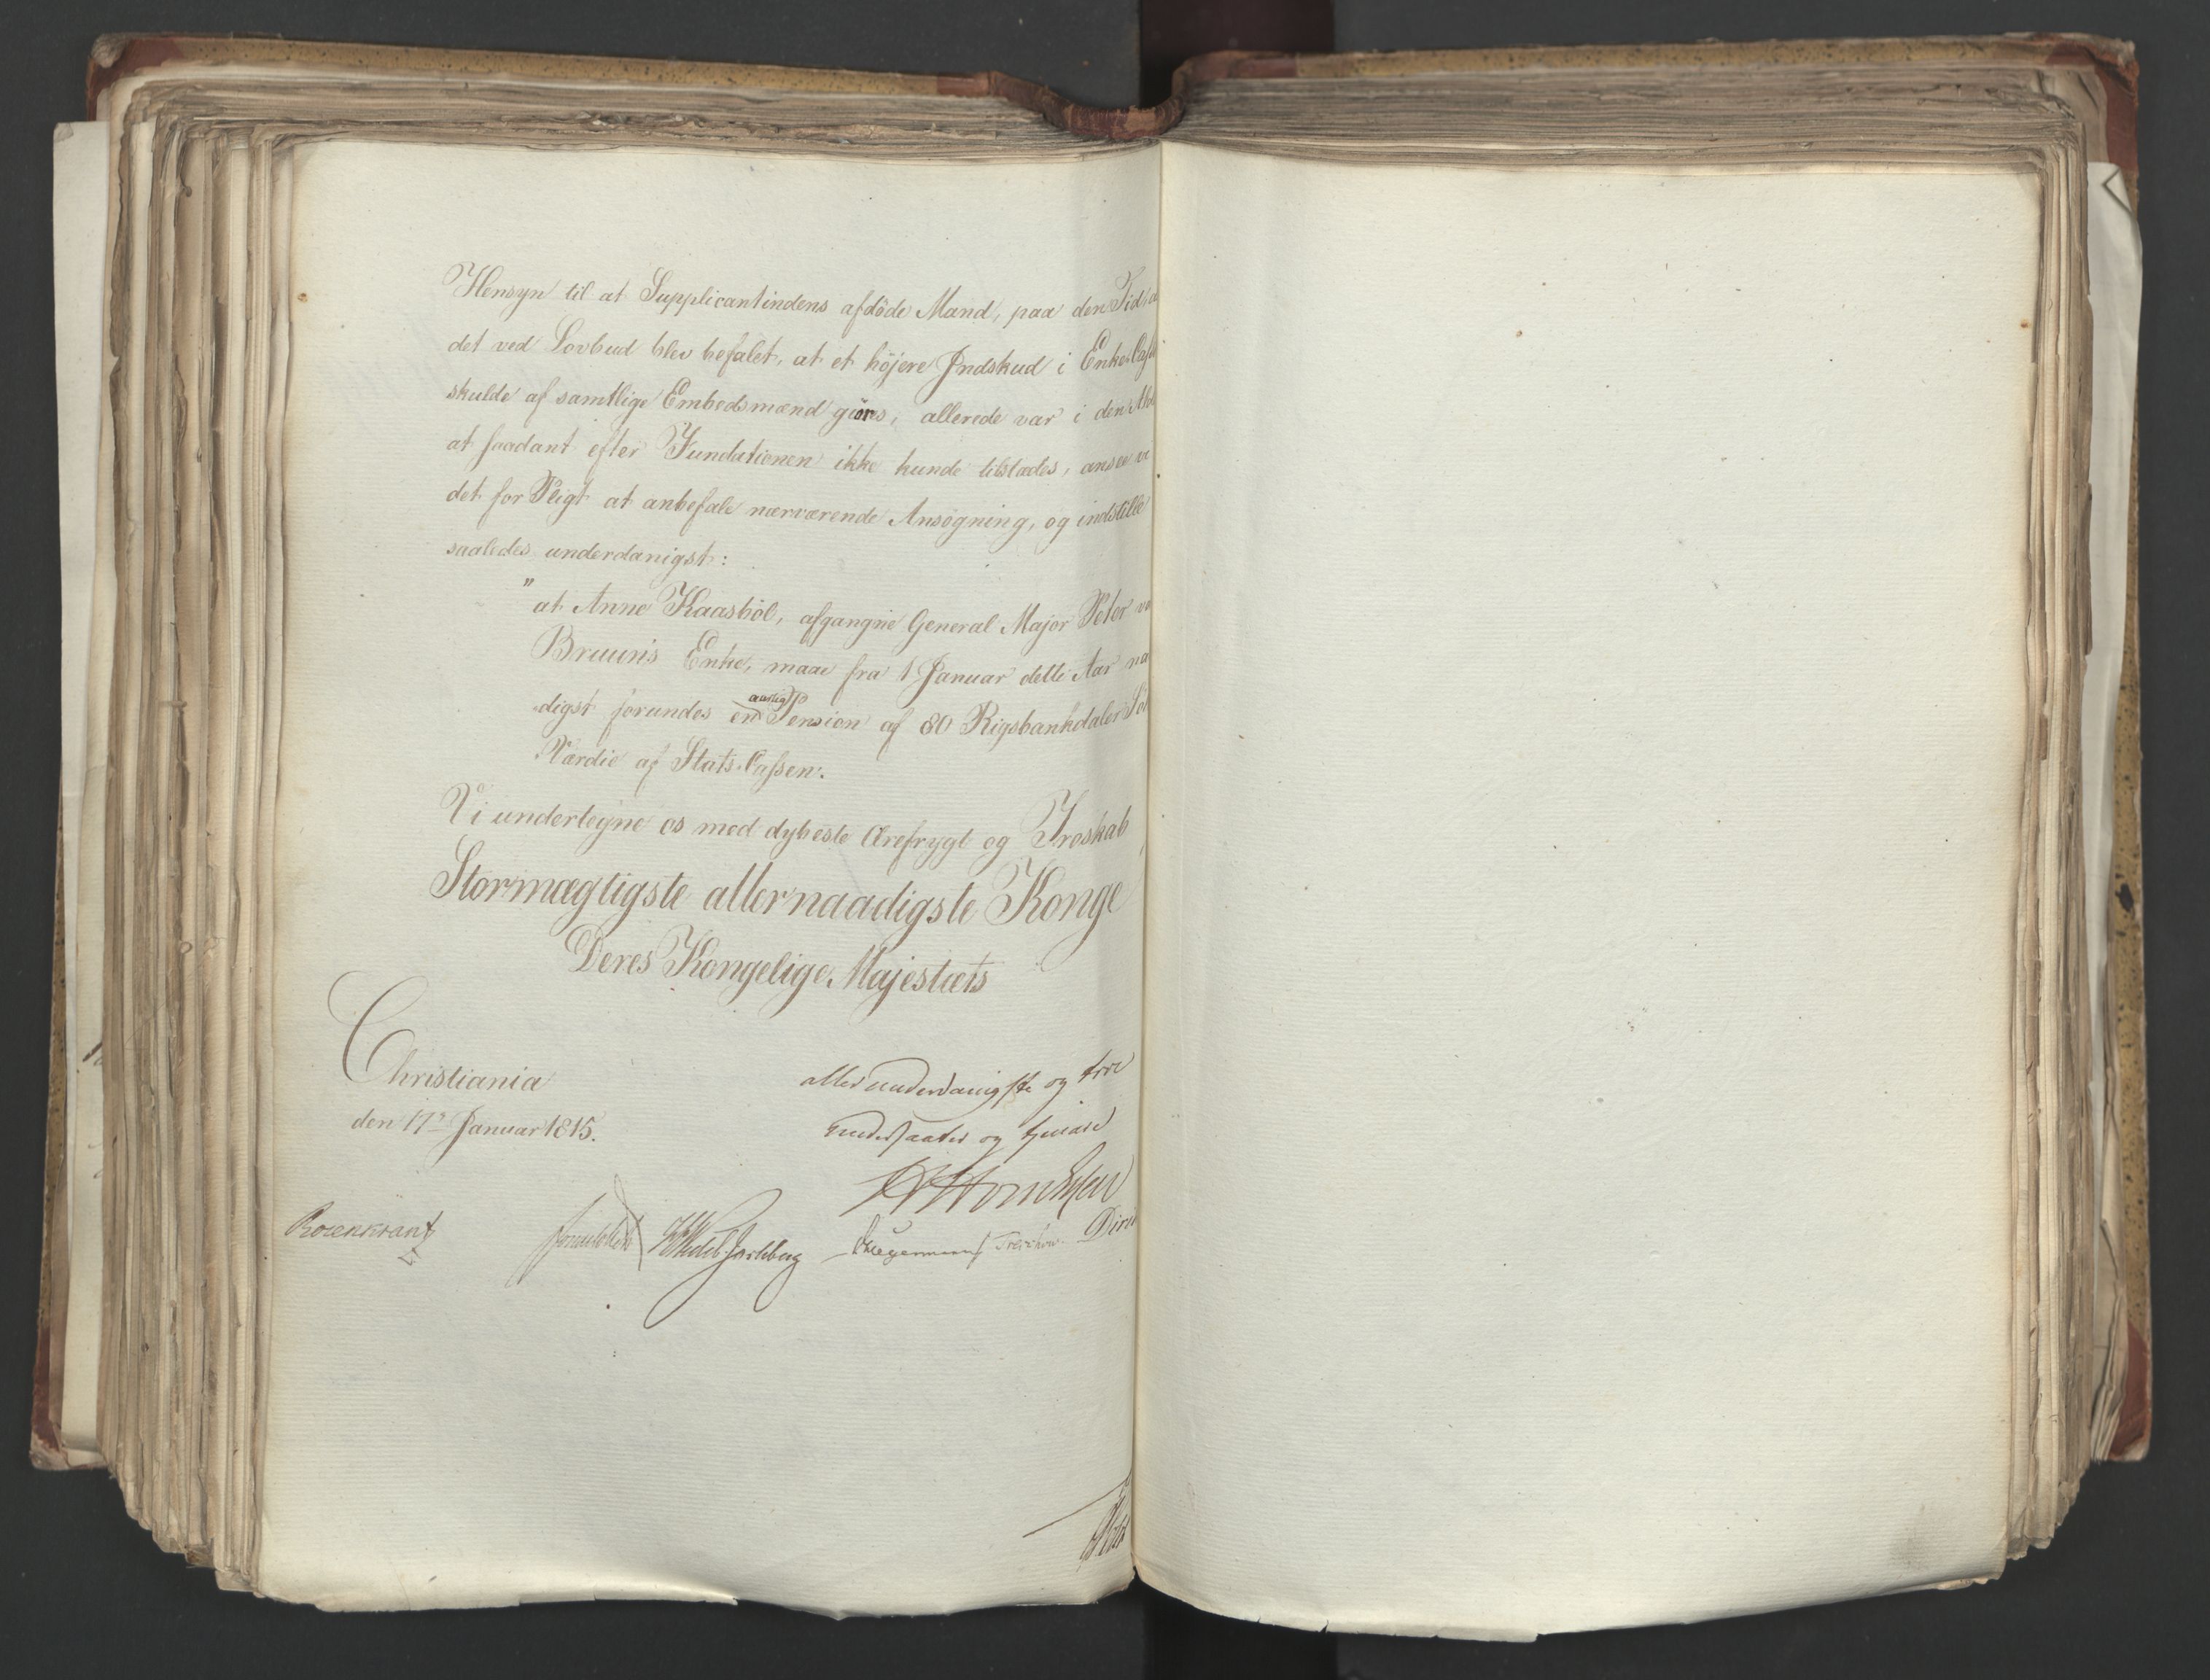 Hensyn til at Supplicantindens afdöde Mand, paa den Tid
det ved Lovbud blev befalet, at et höjere Indskud i Enke-Cass
skulde af samtlige Embedsmænd giöres, allerede var i den
at saadant efter Fundationen ikke kunde tilstædes, ansee
det for Pligt at anbefale nærværende Ansögning, og indstille
saaledes underdanigst:
"at Anne Kaasböl, afgangne General Major Peter
Bruuns Enke, maae fra 1 Januar dette Aar na
digst forundes en aarlig Pension af 80 Rigsbankdaler Söl
Værdie af Stats-Cassen.
Vi underteyne os med dybeste Ærefrygt og Troskab
Stormægtigste allernaadigste Konge
Deres Kongelige Majestæts
Christiania
den 17de Januar 1815.
allerunderdanigste og troe
Undersaatter og tjenere
Rosenkrantz
Sommerfeldt
Wedel Jarlsberg
Hegermann
Treschow